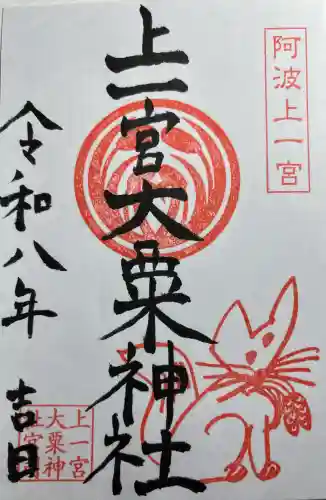 阿波上一宮
上一宮大粟神社
令和八年 吉日
上一宮
大粟神
社宮印